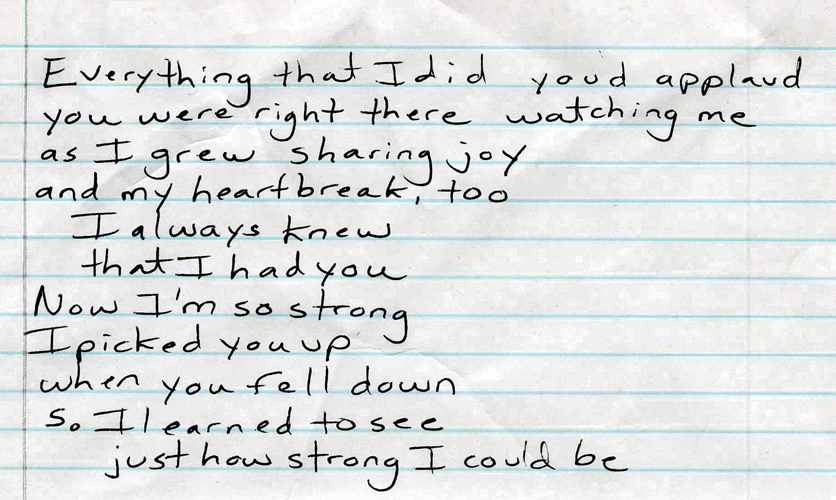 Everything that I did youd applaud
you were right there watching me
as I grew sharing joy
and my heartbreak, too
I always knew
that I had you
Now I'm so strong
I picked you up
when you fell down
So I learned to see
just how strong I could be